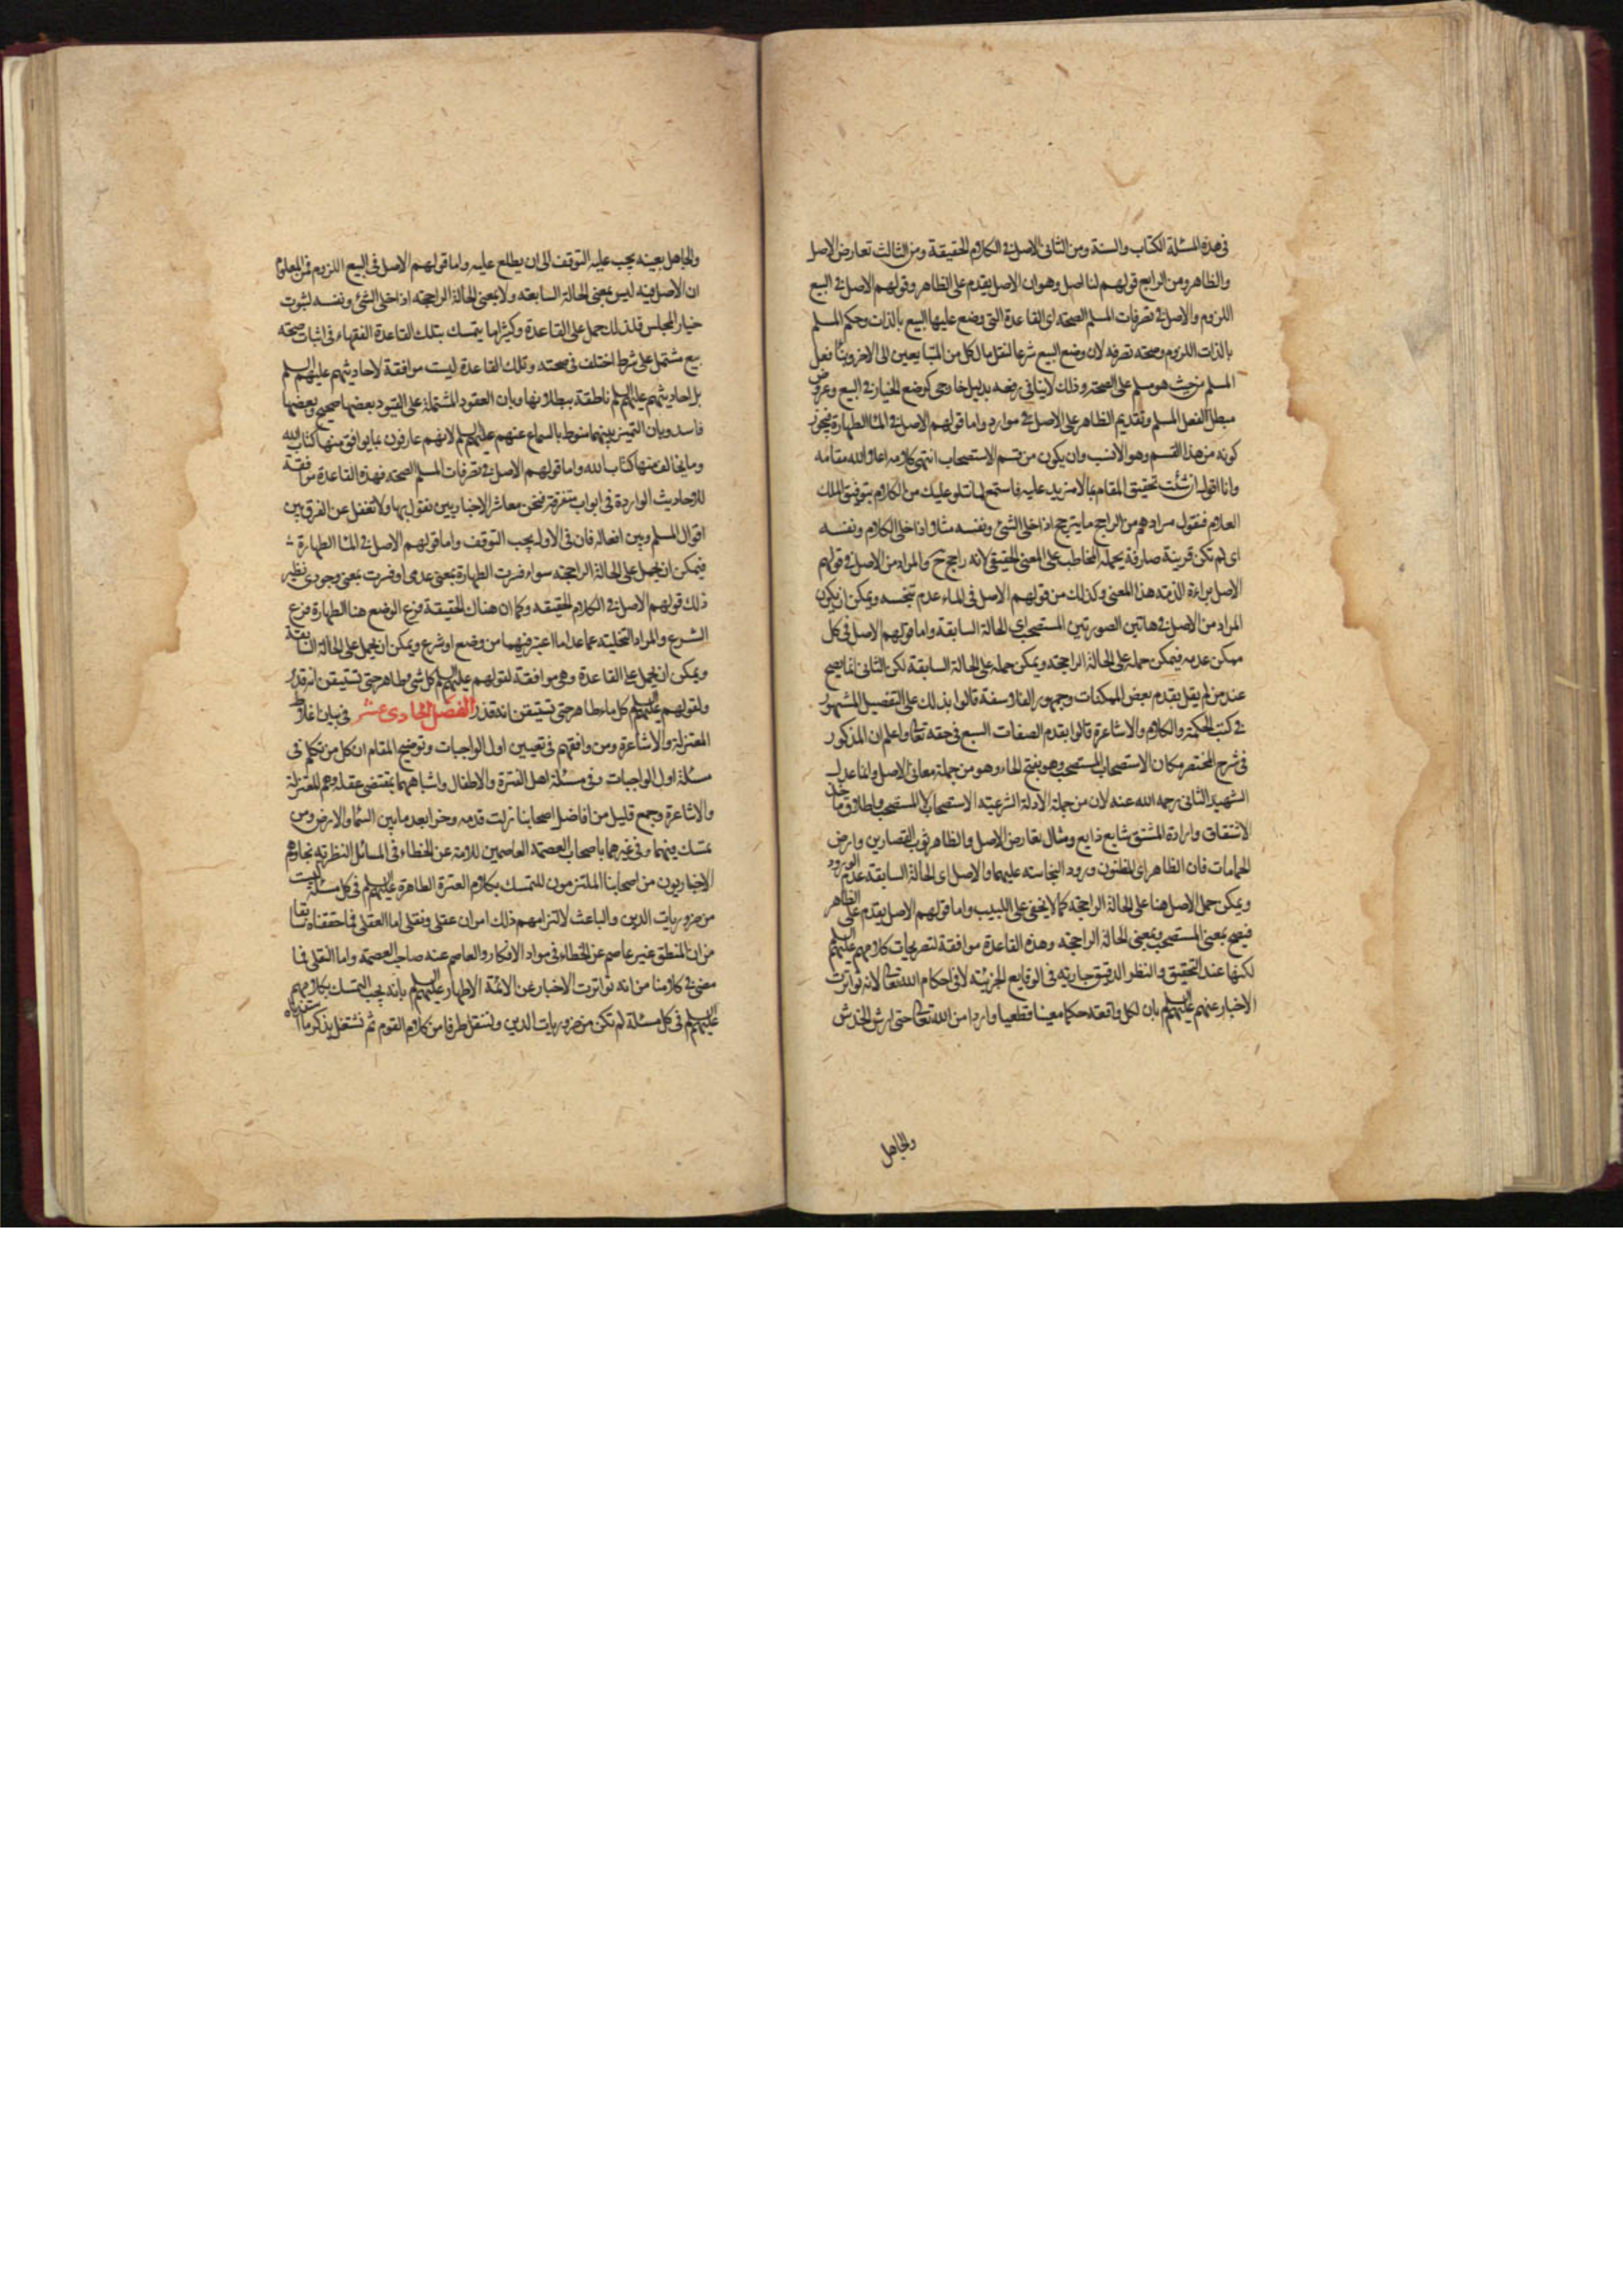 في هذه المسئلة الكتاب والسنة ومن الثاني الاصل في الكلام الحقيقة ومن الثالث تعارض الاصل
والظاهر ومن الرابع قولهم لنا اصل وهو ان الاصل يقدم على الظاهر وقولهم الاصل في البيع
اللزوم والاصل في تصرفات المسلم الصحة اى القاعدة التي وضع عليها البيع بالذات وحكم المسلم
بالذات اللزوم وصحة تصرفه لان وضع البيع شرعا لنقل مال كل من المتبايعين الى الاخر وبناء فعل
المسلم من حيث هو مسلم على الصحة وذلك لاينافي رفعه بدليل خارجي كوضع الخيار في البيع وعروض
مبطل لفعل المسلم وتقديم الظاهر على الاصل في موارد واما قولهم الاصل في الماء الطهارة فيجوز
كونه من هذا القسم وهو الانسب وان يكون من قسم الاستصحاب انتهى كلامه اعلى الله مقامه
وانا اقول ان شئت تحقيق المقام بما لامزيد عليه فاستمع لما نتلو عليك من الكلام بتوفيق الملك
العلام فنقول مرادهم من الراجح ما يترجح اذا خلى الشئ ونفسه مثلا اذا خلى الكلام ونفسه
اى لم تكن قرينة صارفة يحمله المخاطب على المعنى الحقيقي لانه راجح ح والمراد من الاصل في قولهم
الاصل براءة الذمة هذا المعنى وكذلك من قولهم الاصل في الماء عدم تنجسه ويمكن ان يكون
المراد من الاصل في هاتين الصورتين المستصحب اى الحالة السابقة واما قولهم الاصل في كل
ممكن عدمه فيمكن حمله على الحالة الراجحة ويمكن حمله على الحالة السابقة لكن الثاني انما يصح
عند من لم يقل بقدم بعض الممكنات وجمهور الفلاسفة قالوا بذلك على التفصيل المشهور
في كتب الحكمة والكلام والاشاعرة قالوا بقدم الصفات السبع في حقه تعالى واعلم ان المذكور
في شرح المختصر مكان الاستصحاب المستصحب وهو بفتح الحاء وهو من جملة معاني الاصل وانما عدل
الشهيد الثاني رحمه الله عنه لان من جملة الادلة الشرعية الاستصحاب لا المستصحب واطلاق ماخذ
الاشتقاق وارادة المشتق شايع ذايع ومثال تعارض الاصل والظاهر ثوب القصارين وارض
الحمامات فان الظاهر اى المظنون ورود النجاسة عليهما والاصل اى الحالة السابقة عدم الورود
ويمكن حمل الاصل هنا على الحالة الراجحة كما لايخفى على اللبيب واما قولهم الاصل يقدم على الظاهر
فيصح بمعنى المستصحب وبمعنى الحالة الراجحة وهذه القاعدة موافقة لتصريحات كلامهم عليهم السلم
لكنها عند التحقيق والنظر الدقيق جارية في الوقايع الجزئية لا في احكام الله تعالى لانه تواترت
الاخبار عنهم عليهم السلم بان لكل واقعة حكما معينا قطعيا واردا من الله تعالى حتى ارش الخدش
والجاهل
والجاهل بعينه يجب عليه التوقف الى ان يطلع عليه واما قولهم الاصل في البيع اللزوم فمن المعلوم
ان الاصل فيه ليس بمعنى الحالة السابقة ولا بمعنى الحالة الراجحة اذا خلى الشئ ونفسه لثبوت
خيار المجلس فلذلك حمل على القاعدة وكثيرا ما يتمسك بتلك القاعدة الفقهاء في اثبات صحة
بيع مشتمل على شرط اختلف في صحته وتلك القاعدة ليست موافقة لاحاديثهم عليهم السلم
بل احاديثهم عليهم السلم ناطقة ببطلانها وبان العقود المشتملة على القيود بعضها صحيح وبعضها
فاسد وبان التميز بينهما منوط بالسماع عنهم عليهم السلم لانهم عارفون بما يوافق منها كتاب الله
وما يخالف منها كتاب الله واما قولهم الاصل في تصرفات المسلم الصحة فهذه القاعدة موافقة
للاحاديث الواردة في ابواب متفرقة فنحن معاشر الاخباريين نقول بها ولا تغفل عن الفرق بين
اقوال المسلم وبين افعاله فان في الاول يجب التوقف واما قولهم الاصل في الماء الطهارة
فيمكن ان يحمل على الحالة الراجحة سواء فسرت الطهارة بمعنى عدمي او فسرت بمعنى وجودى نظير
ذلك قولهم الاصل في الكلام الحقيقة وكما ان هناك الحقيقة فرع الوضع هنا الطهارة فرع
الشرع والمراد التخلية عما عدا ما اعتبر فيهما من وضع او شرع ويمكن ان يحمل على الحالة السابقة
ويمكن ان يحمل على القاعدة وهي موافقة لقولهم عليهم السلم كل شئ طاهر حتى تستيقن انه قذر
ولقولهم عليهم السلم كل ماء طاهر حتى تستيقن انه قذر الفصل الحادى عشر في بيان اغلاط
المعتزلة والاشاعرة ومن وافقهم في تعيين اول الواجبات وتوضيح المقام ان كل من تكلم في
مسئلة اول الواجبات وفي مسئلة اهل الفترة والاطفال واشباههما بمقتضى عقله وهم المعتزلة
والاشاعرة وجمع قليل من افاضل اصحابنا زلت قدمه وخر ابعد ما بين السماء والارض ومن
تمسك فيهما وفي غيرهما باصحاب العصمة العاصمين للامة عن الخطاء في المسائل النظرية نجا وهم
الاخباريون من اصحابنا الملتزمون للتمسك بكلام العترة الطاهرة عليهم السلم في كل مسئلة ليست
من ضروريات الدين والباعث لالتزامهم ذلك امران عقلي ونقلي اما العقلي فما حققناه سابقا
من ان المنطق غير عاصم عن الخطاء في مواد الافكار والعاصم عنه صاحب العصمة واما النقلي فما
مضى في كلامنا من انه تواترت الاخبار عن الائمة الاطهار عليهم السلم بانه يجب التمسك بكلامهم
عليهم السلم في كل مسئلة لم تكن من ضروريات الدين وننقل طرفا من كلام القوم ثم نشتغل بذكر ما استفدناه